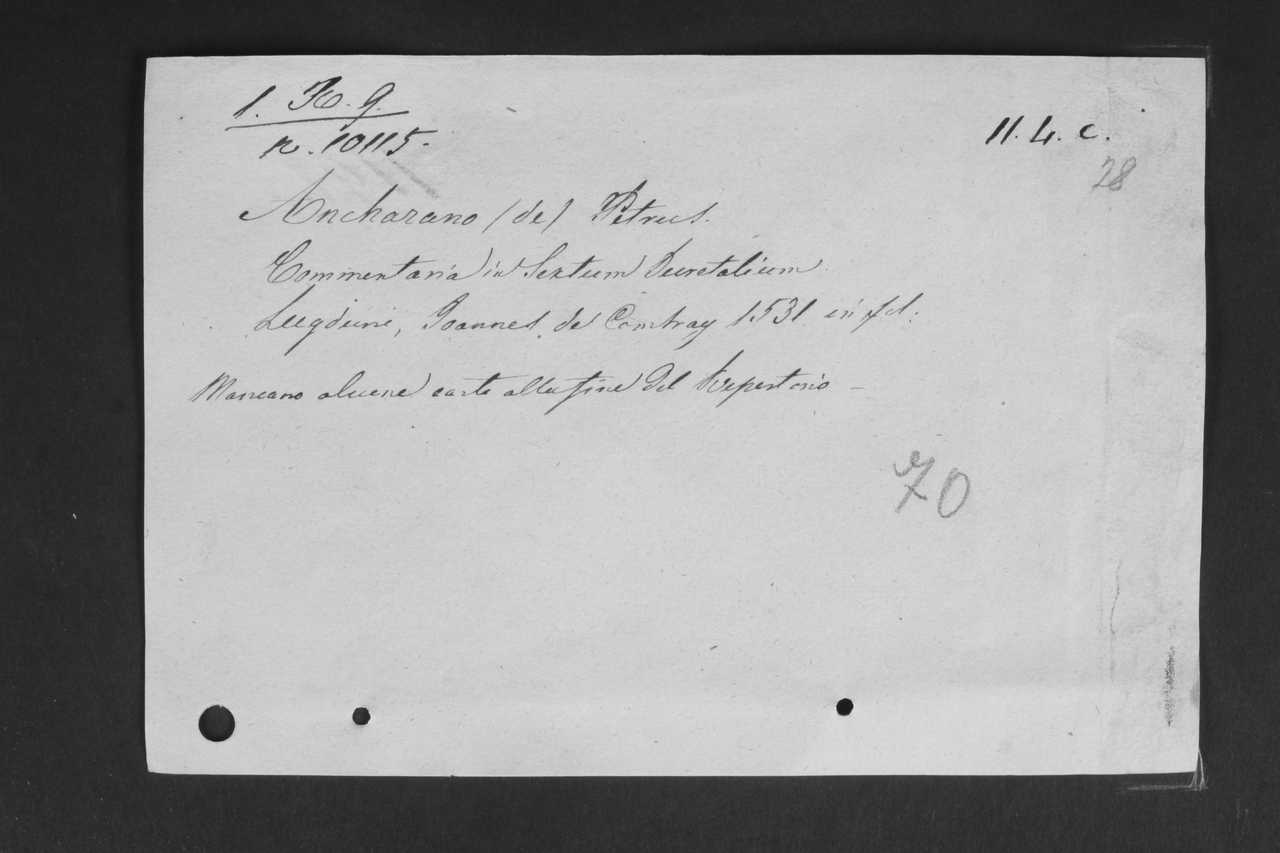 1. K. 9.
n. 10115.
11. 4. c.
28
Ancharano (de) Petrus.
Commentaria in Sextum Decretalium
Lugduni, Joannes de Combray 1531 in fol:
Mancano alcune carte alla fine del Repertorio –
70